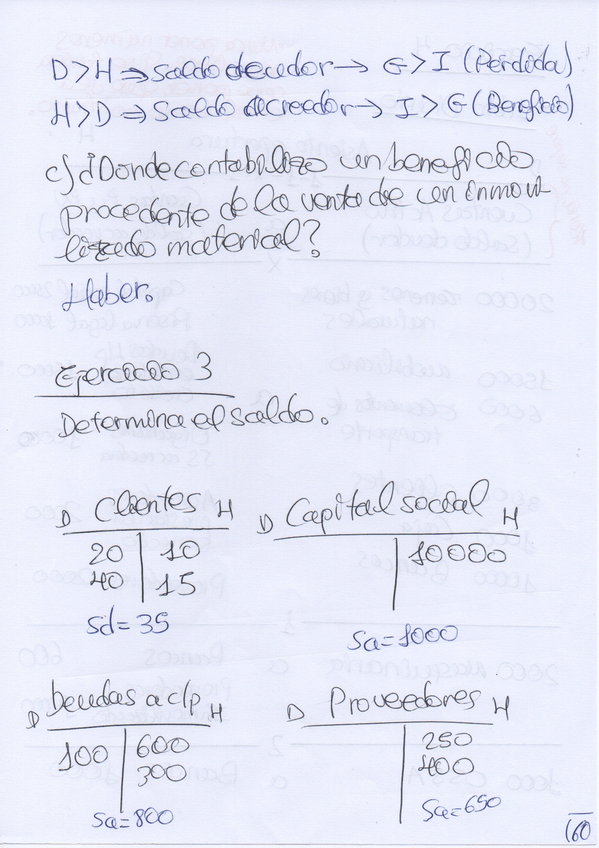 D>H ⇒ Saldo deudor → G>I (Pérdida)
H>D ⇒ Saldo acreedor → I>G (Beneficio)
c) ¿Dónde contabilizo un beneficio
procedente de la venta de un inmovi
lizado material?
Haber.
Ejercicio 3
Determina el saldo.
D Clientes H
20 | 10
40 | 15
Sd=35
D Capital social H
10000
Sa=1000
D Deudas a c/p H
100 | 600
300
Sa=800
D Proveedores H
250
400
Sa=650
160